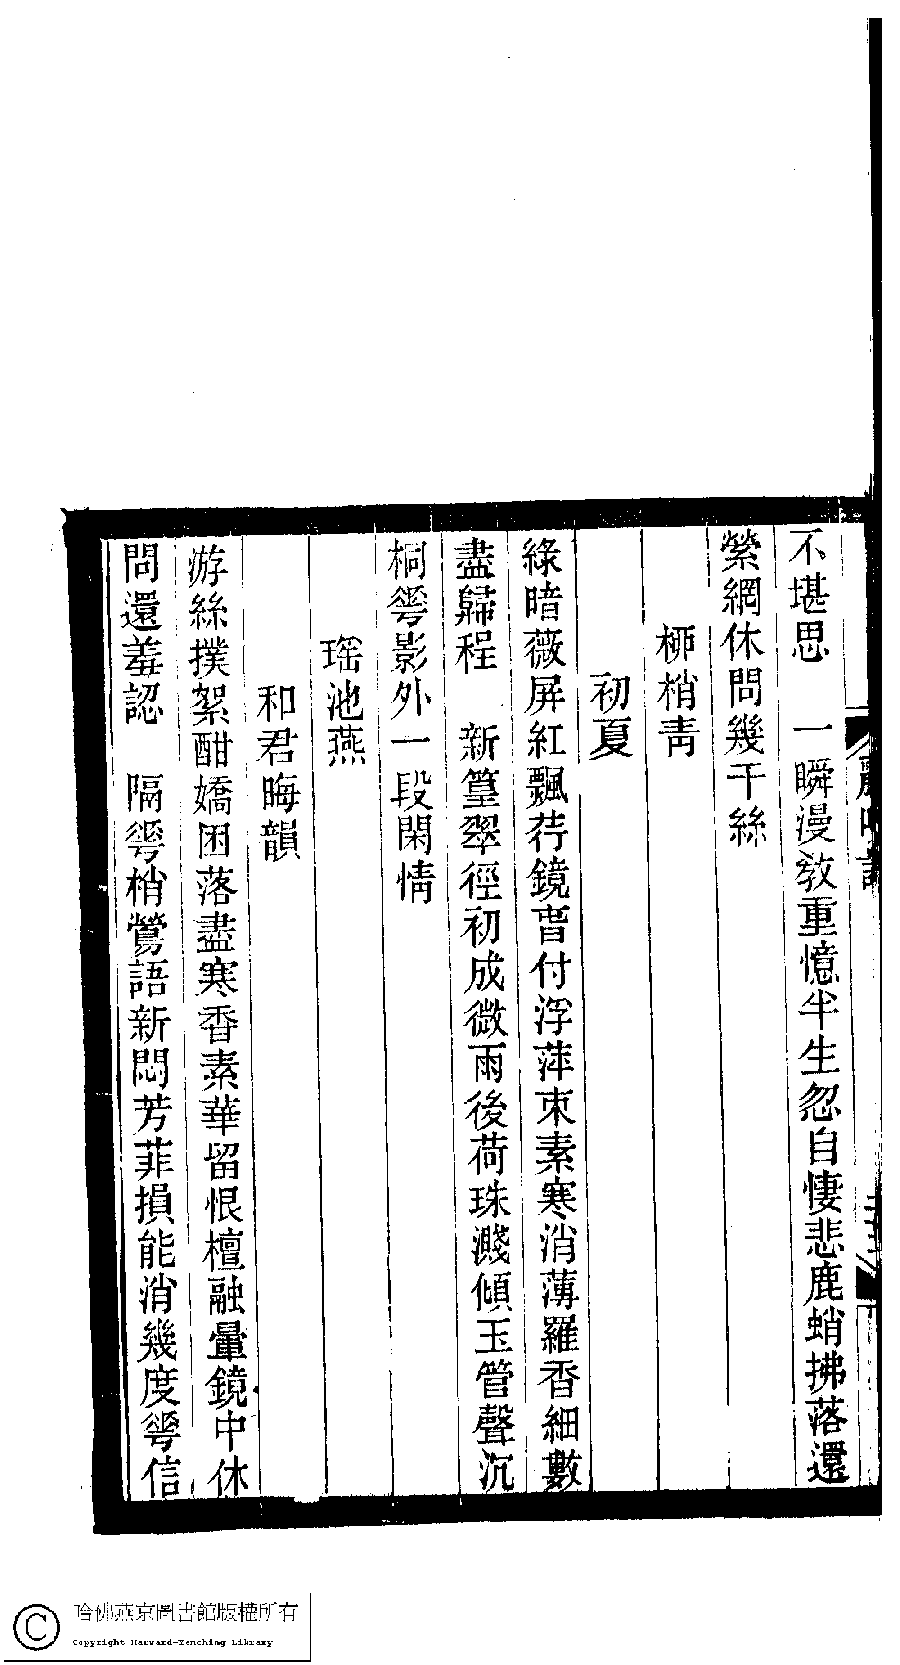 不堪思　一瞬漫教重憶半生忽自悽悲鹿蛸拂落還
縈網休問幾千絲
柳梢青
初夏
綠暗薇屏紅飄荇鏡暫付浮萍束素寒消薄羅香細數
盡歸程　新篁翠徑初成微雨後荷珠濺傾玉管聲沉
桐蕚影外一段閑情
瑶池燕
和君晦韻
游絲撲絮酣嬌困落盡寒香素華留恨檀融暈鏡中休
問還羞認　隔蕚梢鶯語新悶芳菲損能消幾度蕚信
哈佛燕京圖書館版權所有
Copyright Harvard-Yenching Library